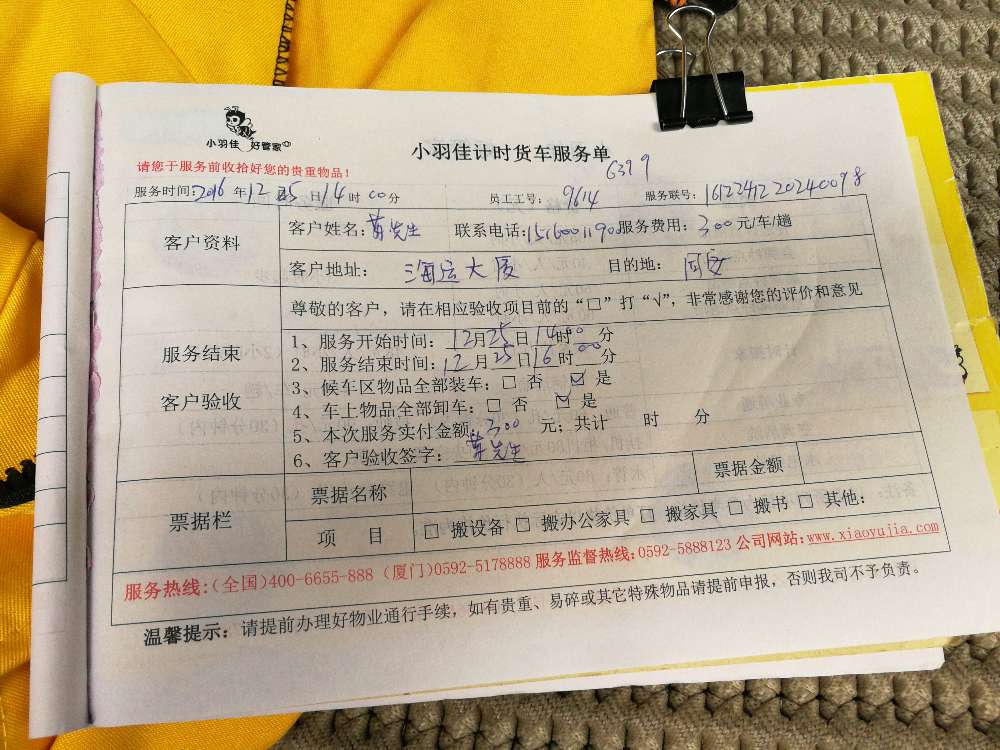 小羽佳 好管家
小羽佳计时货车服务单
6379
请您于服务前收拾好您的贵重物品！
服务时间：2016 年 12 月 25 日 14 时 00 分 员工工号：9614 服务联号：16122412 20240098
客户资料
客户姓名：先生 联系电话：服务费用：300 元/车/趟
客户地址：海运大厦 目的地：同安
尊敬的客户，请在相应验收项目前的“□”打“√”，非常感谢您的评价和意见
服务结束
客户验收
1、服务开始时间：12月25日14时00分
2、服务结束时间：12月25日16时00分
3、候车区物品全部装车：□ 否 ☑ 是
4、车上物品全部卸车：□ 否 ☑ 是
5、本次服务实付金额：300 元；共计 时 分
6、客户验收签字：先生
票据栏
票据名称 票据金额
项 目 □ 搬设备 □ 搬办公家具 □ 搬家具 □ 搬书 □ 其他：
服务热线：（全国）400-6655-888（厦门）0592-5178888 服务监督热线：0592-5888123 公司网站：www.xiaoyujia.com
温馨提示：请提前办理好物业通行手续，如有贵重、易碎或其它特殊物品请提前申报，否则我司不予负责。